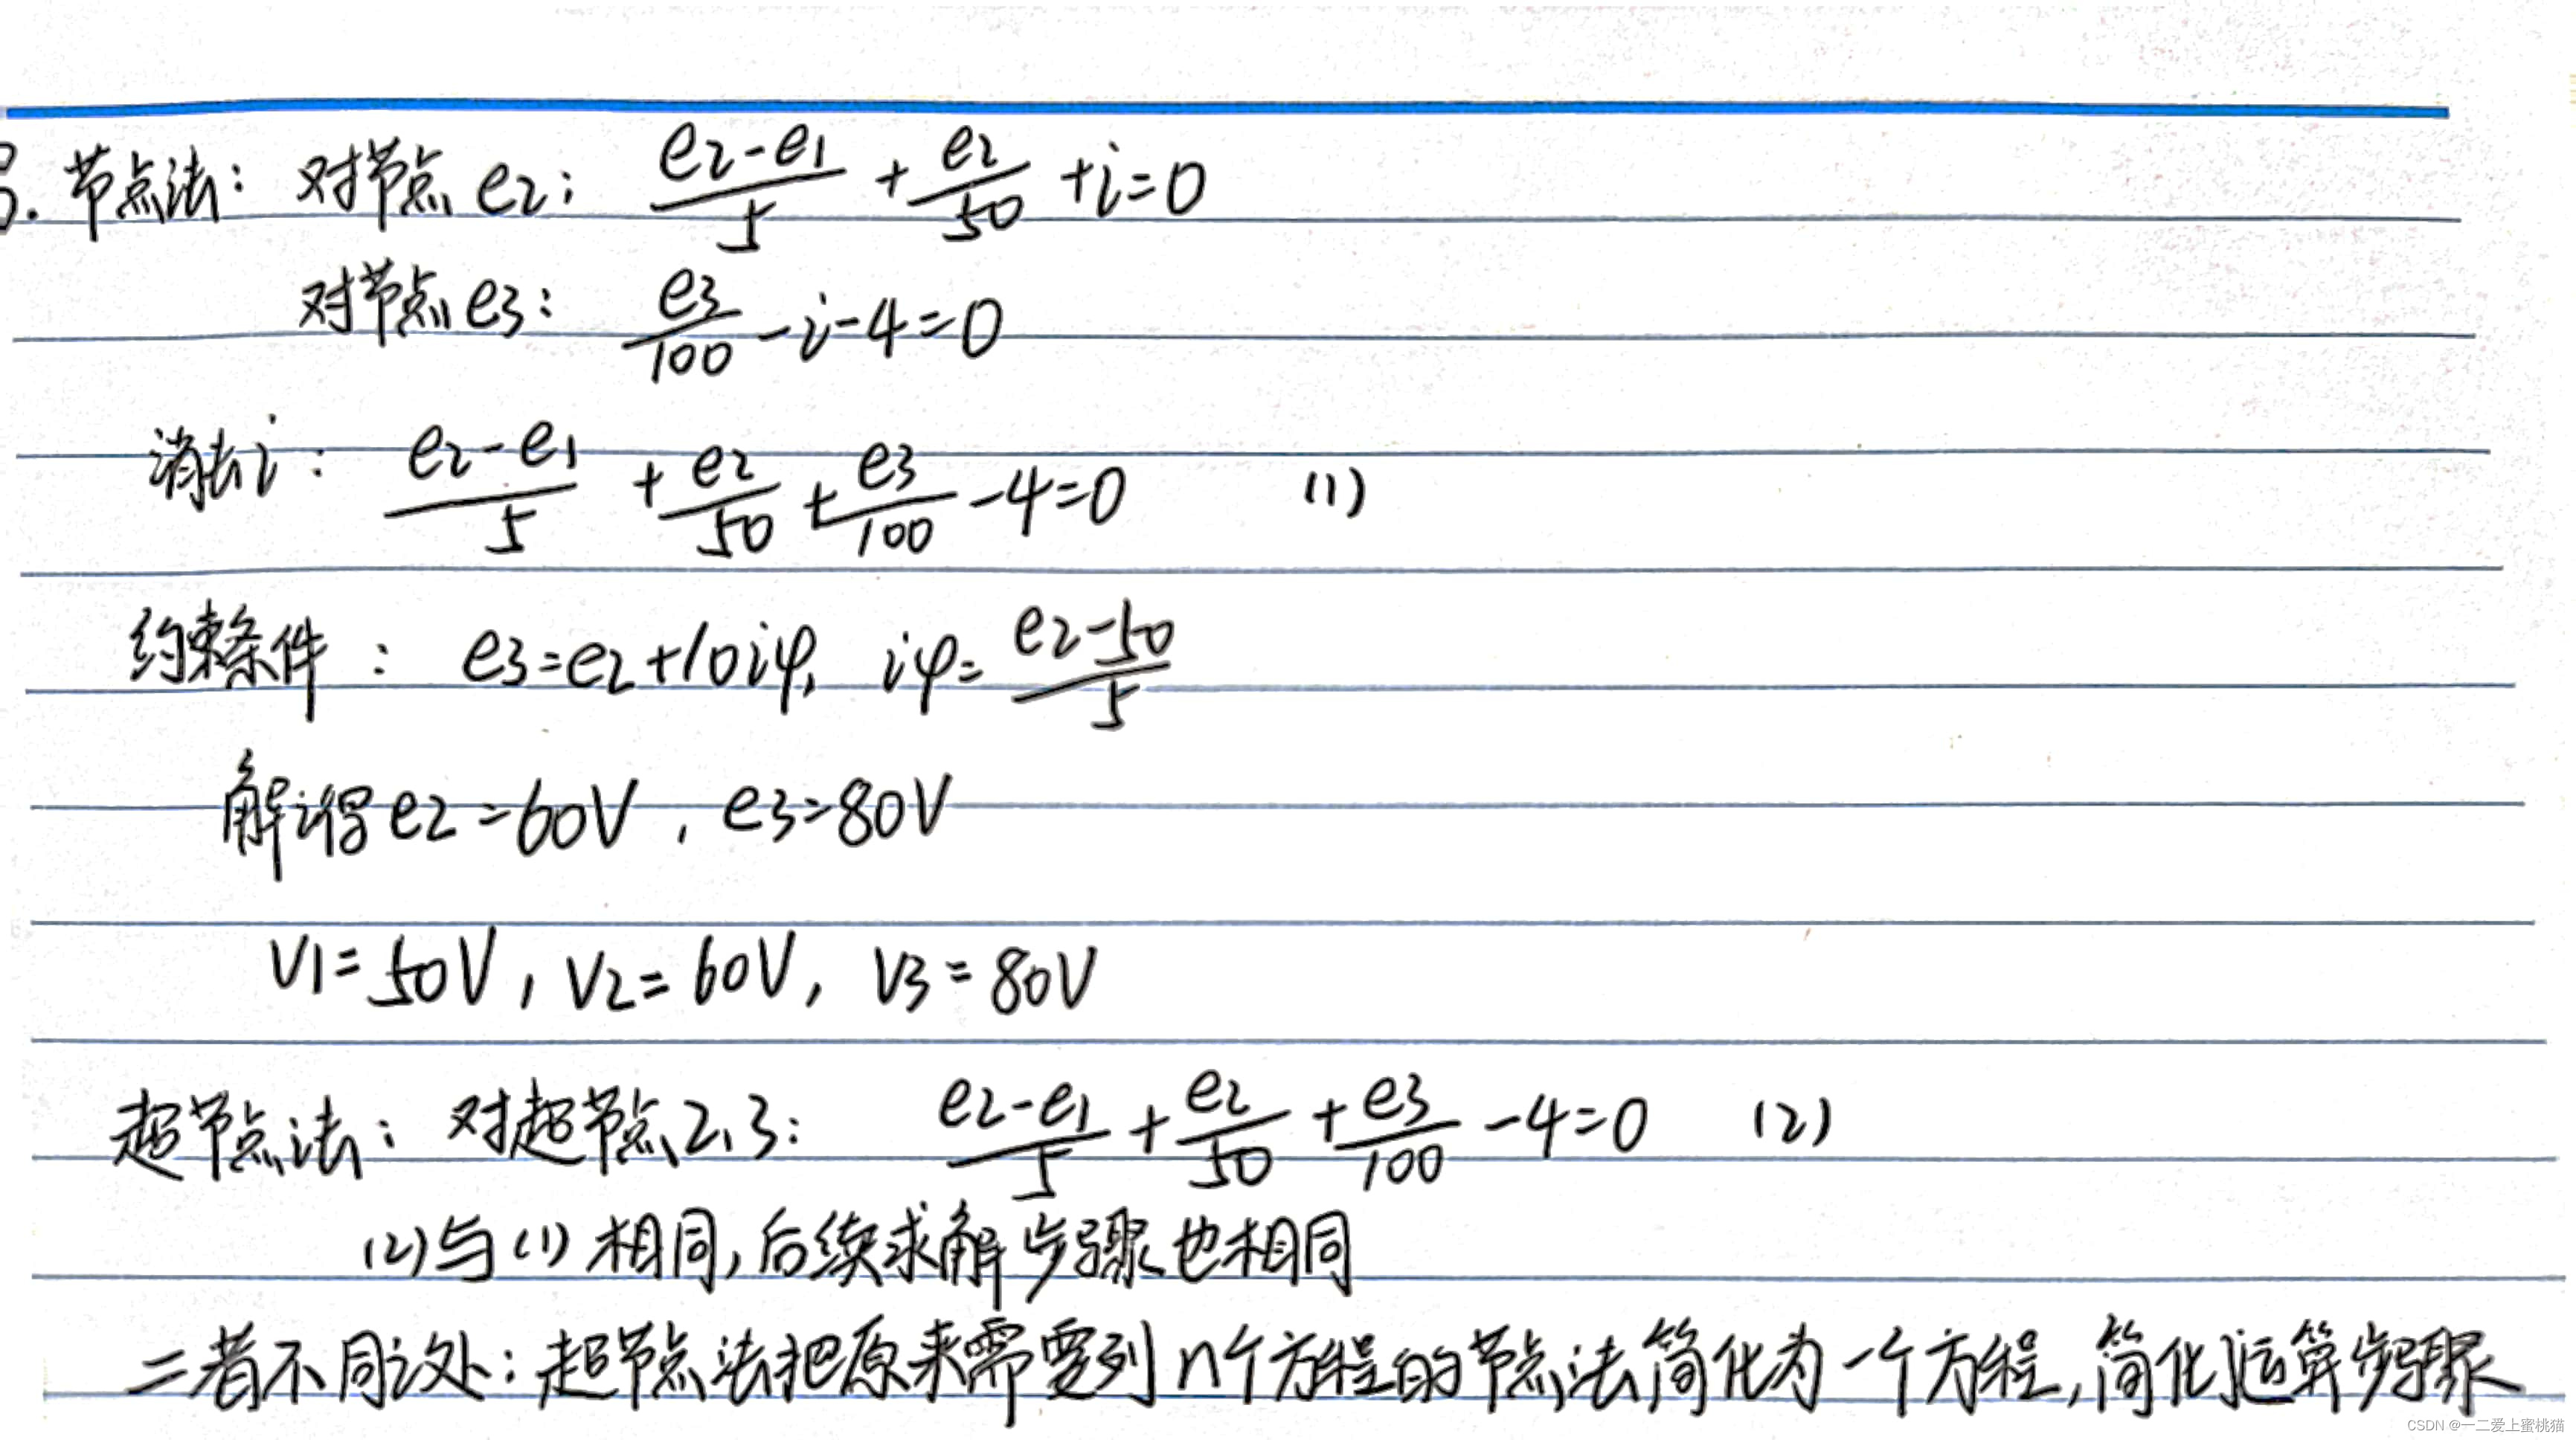 3. 节点法: 对节点e2: (e2-e1)/5 + e2/50 + i=0
对节点e3: e3/100 - i - 4=0
消去i: (e2-e1)/5 + e2/50 + e3/100 - 4=0 (1)
约束条件: e3=e2+10iφ, iφ=(e2-50)/5
解得e2=60V, e3=80V
V1=50V, V2=60V, V3=80V
超节点法: 对超节点2、3: (e2-e1)/5 + e2/50 + e3/100 - 4=0 (2)
(2)与(1)相同,后续求解步骤也相同
二者不同之处: 超节点法把原来需要列n个方程的节点法简化为一个方程,简化运算步骤
CSDN @一二爱上蜜桃猫